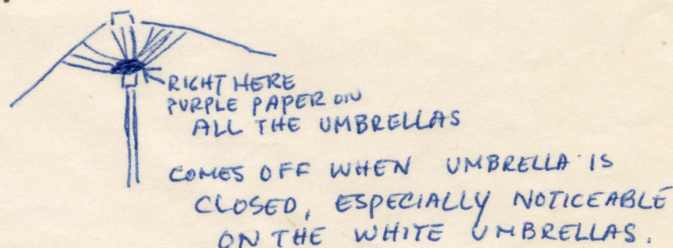 RIGHT HERE
PURPLE PAPER ON
ALL THE UMBRELLAS
COMES OFF WHEN UMBRELLA IS
CLOSED, ESPECIALLY NOTICEABLE
ON THE WHITE UMBRELLAS.